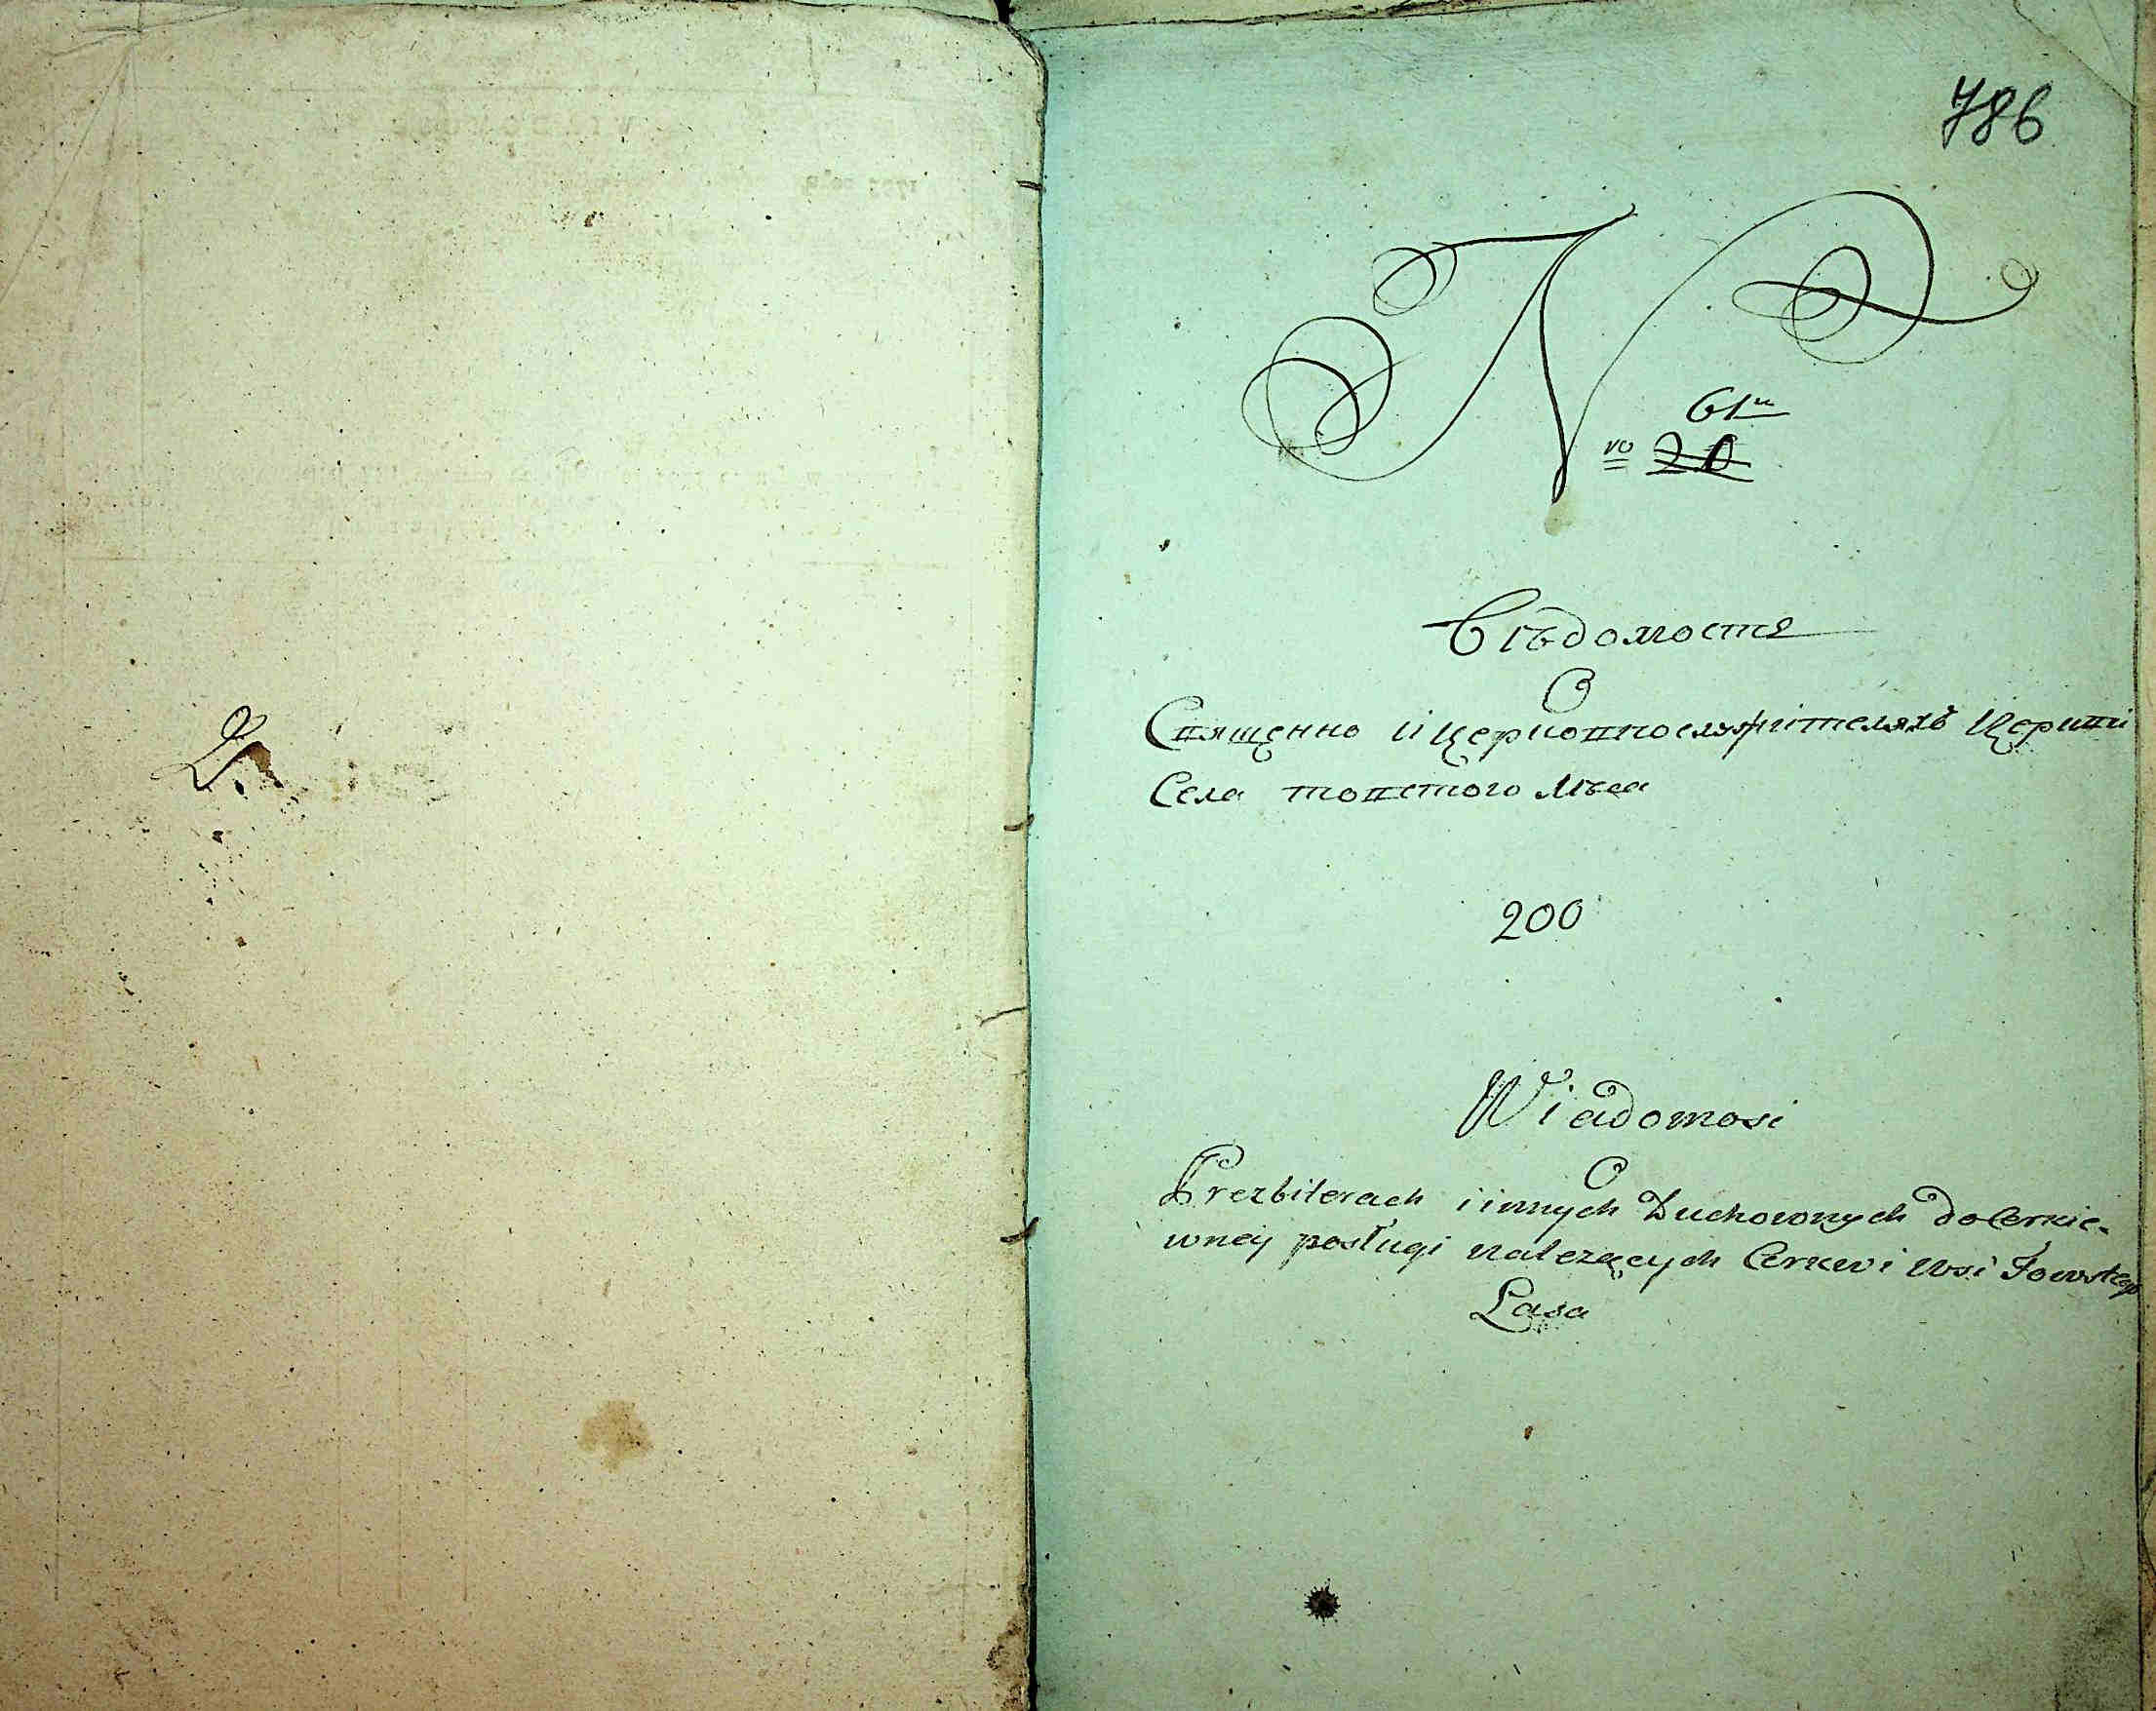 786
N
61
vo 20
Вѣдомостя
О
Священно и церковнослужителяхъ Церкви
Села товстого лѣса
200
Wiadomosi
O
Prezbiterach i innych Duchownych do Cerkie-
wney posługi należących Cerkwi Wsi Towstego
Lasa